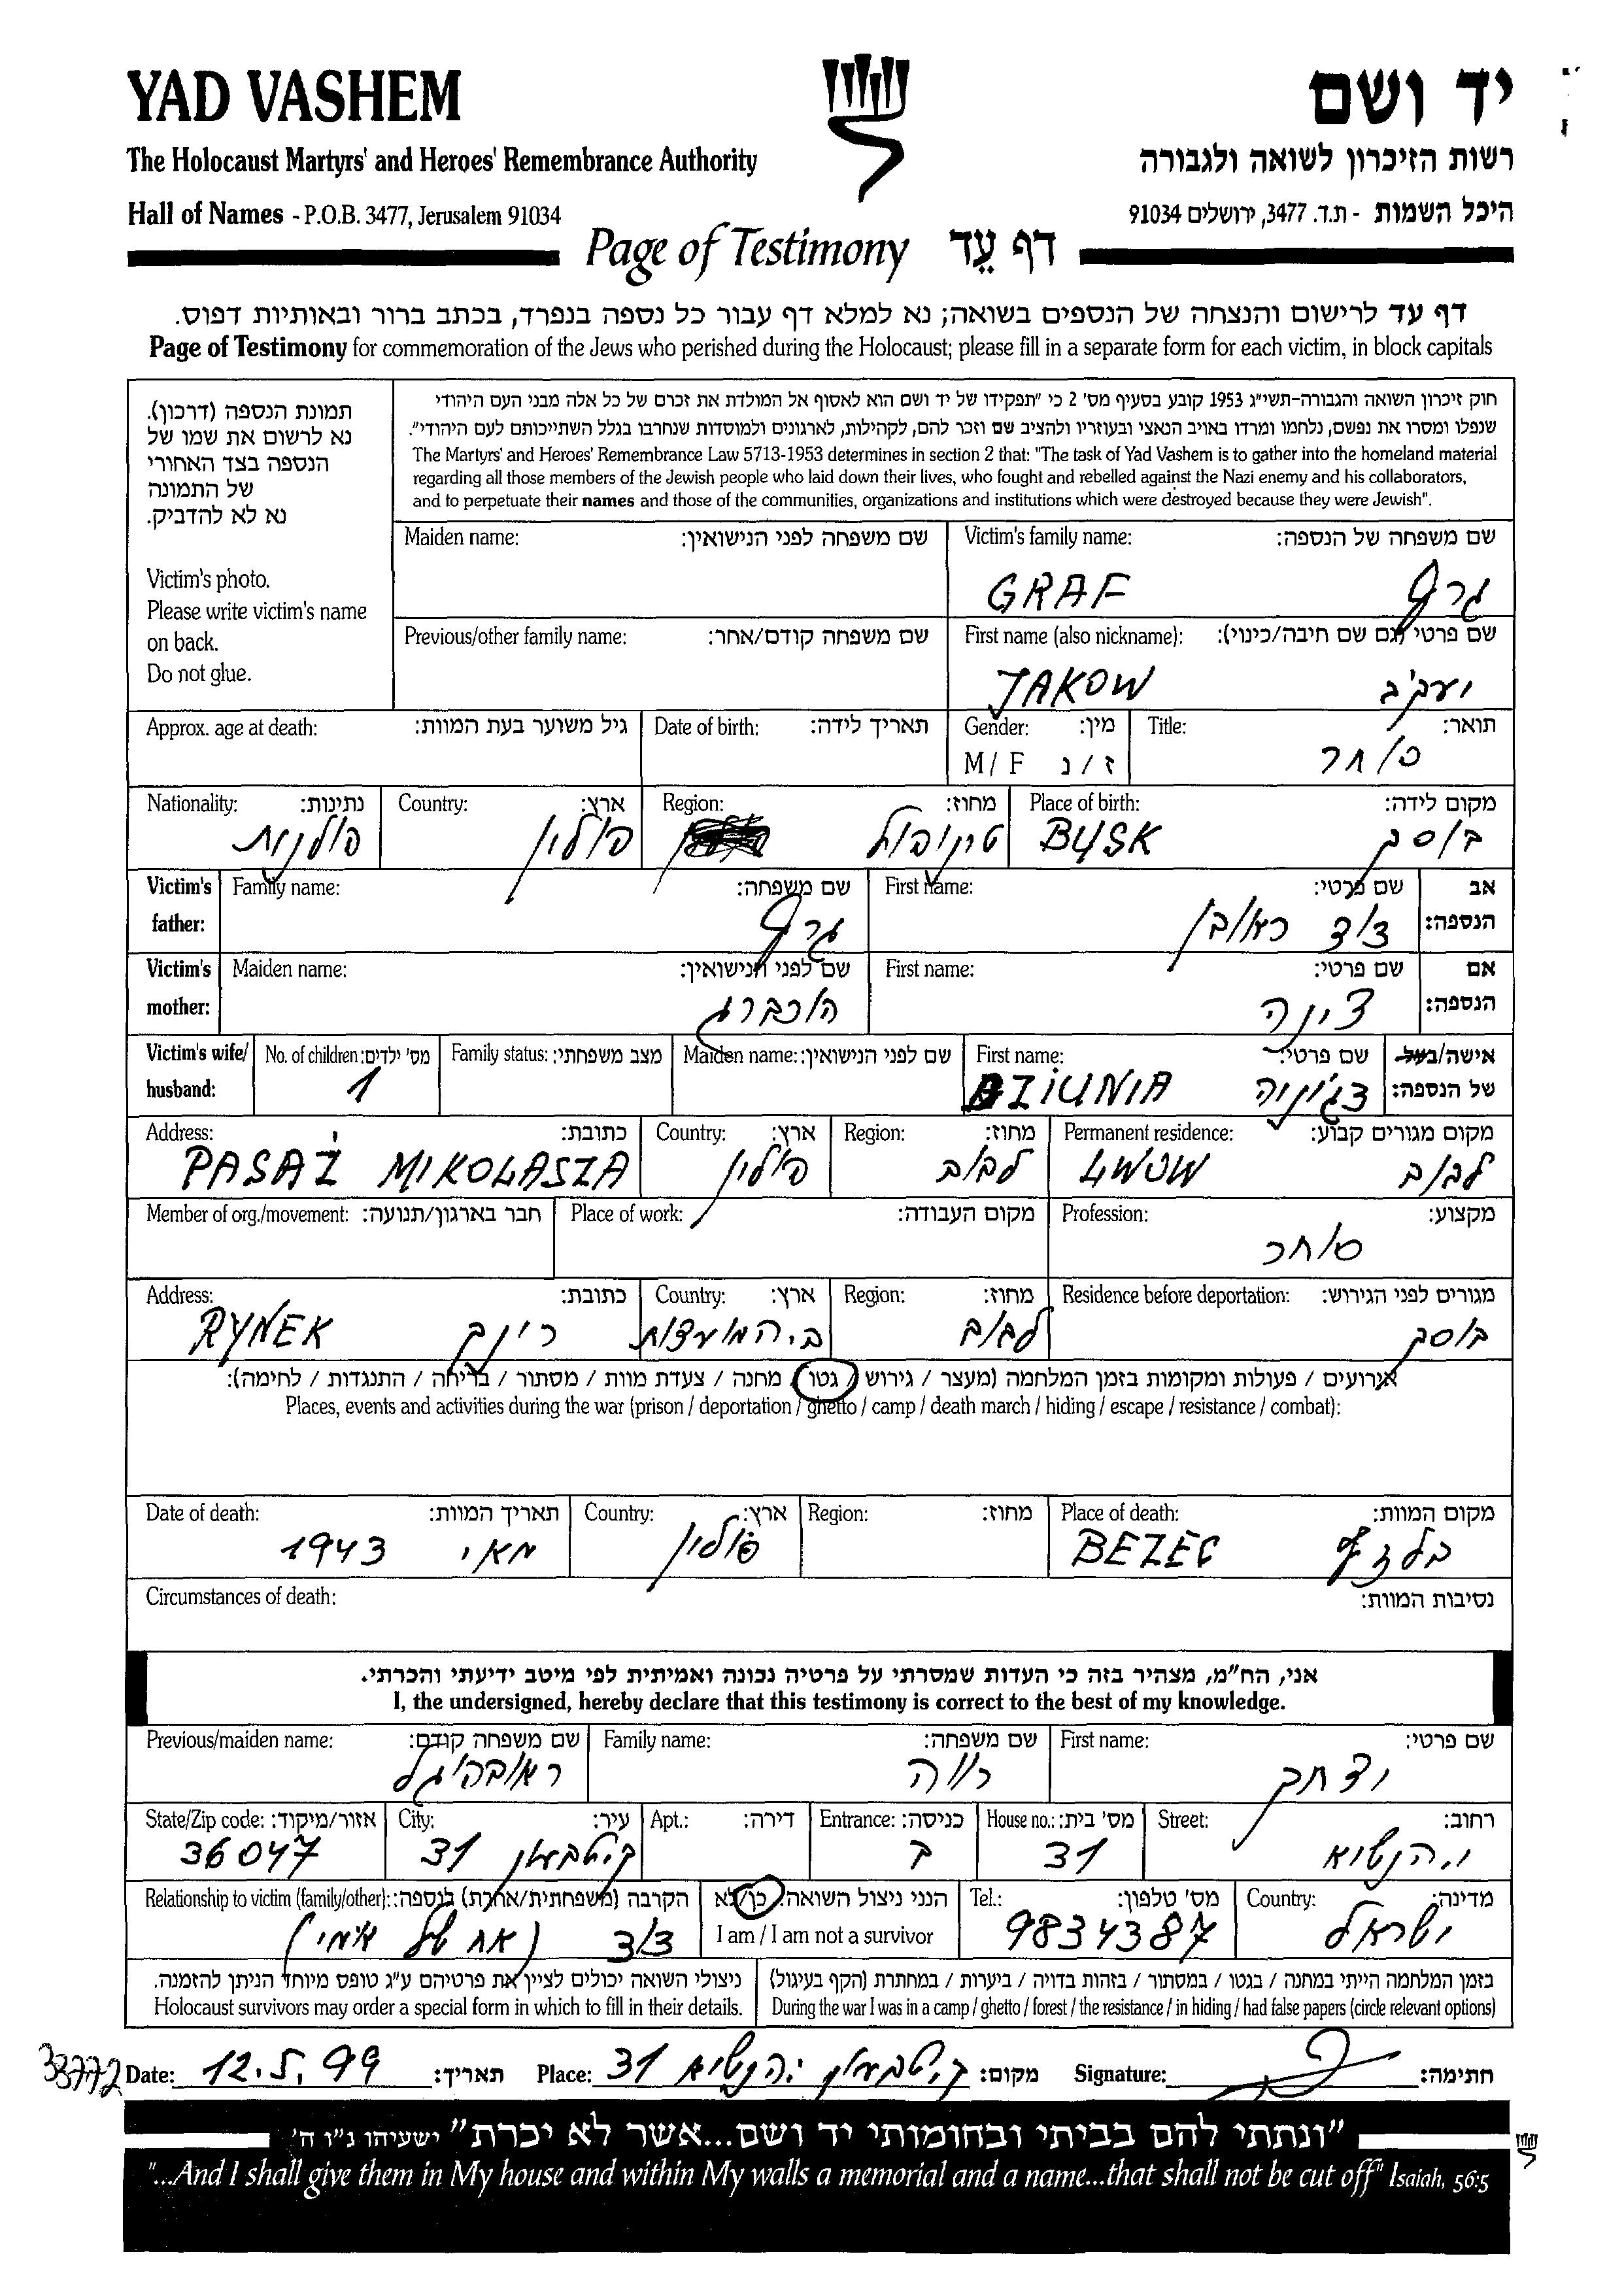 YAD VASHEM
יד ושם
The Holocaust Martyrs' and Heroes' Remembrance Authority
רשות הזיכרון לשואה ולגבורה
Hall of Names - P.O.B. 3477, Jerusalem 91034
היכל השמות - ת.ד. 3477, ירושלים 91034
Page of Testimony דף עֵד
דף עד לרישום והנצחה של הנספים בשואה; נא למלא דף עבור כל נספה בנפרד, בכתב ברור ובאותיות דפוס.
Page of Testimony for commemoration of the Jews who perished during the Holocaust; please fill in a separate form for each victim, in block capitals
תמונת הנספה (דרכון).
נא לרשום את שמו של
הנספה בצד האחורי
של התמונה
נא לא להדביק.
Victim's photo.
Please write victim's name
on back.
Do not glue.
חוק זיכרון השואה והגבורה-תשי"ג 1953 קובע בסעיף מס' 2 כי "תפקידו של יד ושם הוא לאסוף אל המולדת את זכרם של כל אלה מבני העם היהודי
שנפלו ומסרו את נפשם, נלחמו ומרדו באויב הנאצי ובעוזריו ולהציב שם וזכר להם, לקהילות, לארגונים ולמוסדות שנחרבו בגלל השתייכותם לעם היהודי".
The Martyrs' and Heroes' Remembrance Law 5713-1953 determines in section 2 that: "The task of Yad Vashem is to gather into the homeland material
regarding all those members of the Jewish people who laid down their lives, who fought and rebelled against the Nazi enemy and his collaborators,
and to perpetuate their names and those of the communities, organizations and institutions which were destroyed because they were Jewish".
Maiden name: שם משפחה לפני הנישואין: Victim's family name: שם משפחה של הנספה:
GRAF גרף
Previous/other family name: שם משפחה קודם/אחר: First name (also nickname): שם פרטי (גם שם חיבה/כינוי):
JAKOW יעקב
Approx. age at death: גיל משוער בעת המוות: Date of birth: תאריך לידה: Gender: מין: Title: תואר:
M / F ז / נ סוחר
Nationality: נתינות: Country: ארץ: Region: מחוז: Place of birth: מקום לידה:
פולנית פולין טרנופול BUSK בוסק
Victim's father: Family name: שם משפחה: First name: שם פרטי: אב הנספה:
גרף דוד ראובן
Victim's mother: Maiden name: שם לפני הנישואין: First name: שם פרטי: אם הנספה:
הוכברג צינה
Victim's wife/ husband: No. of children: מס' ילדים: Family status: מצב משפחתי: Maiden name: שם לפני הנישואין: First name: שם פרטי: אישה/בעל של הנספה:
1 DZIUNIA דג'וניה
Address: כתובת: Country: ארץ: Region: מחוז: Permanent residence: מקום מגורים קבוע:
PASAŻ MIKOLASZA פולין לבוב LWOW לבוב
Member of org./movement: חבר בארגון/תנועה: Place of work: מקום העבודה: Profession: מקצוע:
סוחר
Address: כתובת: Country: ארץ: Region: מחוז: Residence before deportation: מגורים לפני הגירוש:
RYNEK רינק ב.המועצות לבוב בוסק
אירועים / פעולות ומקומות בזמן המלחמה (מעצר / גירוש / גטו / מחנה / צעדת מוות / מסתור / בריחה / התנגדות / לחימה):
Places, events and activities during the war (prison / deportation / ghetto / camp / death march / hiding / escape / resistance / combat):
Date of death: תאריך המוות: Country: ארץ: Region: מחוז: Place of death: מקום המוות:
מאי 1943 פולין BEZEC בלזץ
Circumstances of death: נסיבות המוות:
אני, הח"מ, מצהיר בזה כי העדות שמסרתי על פרטיה נכונה ואמיתית לפי מיטב ידיעתי והכרתי.
I, the undersigned, hereby declare that this testimony is correct to the best of my knowledge.
Previous/maiden name: שם משפחה קודם: Family name: שם משפחה: First name: שם פרטי:
רווה יצחק
State/Zip code: אזור/מיקוד: City: עיר: Apt.: דירה: Entrance: כניסה: House no.: מס' בית: Street: רחוב:
36047 ק.טבעון 31 ק 31 י.הנשיא
Relationship to victim (family/other): הקרבה (משפחתית/אחרת) לנספה: הנני ניצול השואה: כן/לא Tel.: מס' טלפון: Country: מדינה:
I am / I am not a survivor
דוד (אח של אמי) 9834387 ישראל
ניצולי השואה יכולים לציין את פרטיהם ע"ג טופס מיוחד הניתן להזמנה.
Holocaust survivors may order a special form in which to fill in their details.
בזמן המלחמה הייתי במחנה / בגטו / במסתור / בזהות בדויה / ביערות / במחתרת (הקף בעיגול)
During the war I was in a camp / ghetto / forest / the resistance / in hiding / had false papers (circle relevant options)
33772 Date: 12.5.99 תאריך: Place: ק.טבעון י.הנשיא 31 מקום: Signature: חתימה:
"ונתתי להם בביתי ובחומותי יד ושם...אשר לא יכרת" ישעיהו נ"ו ה'
"...And I shall give them in My house and within My walls a memorial and a name...that shall not be cut off" Isaiah, 56:5